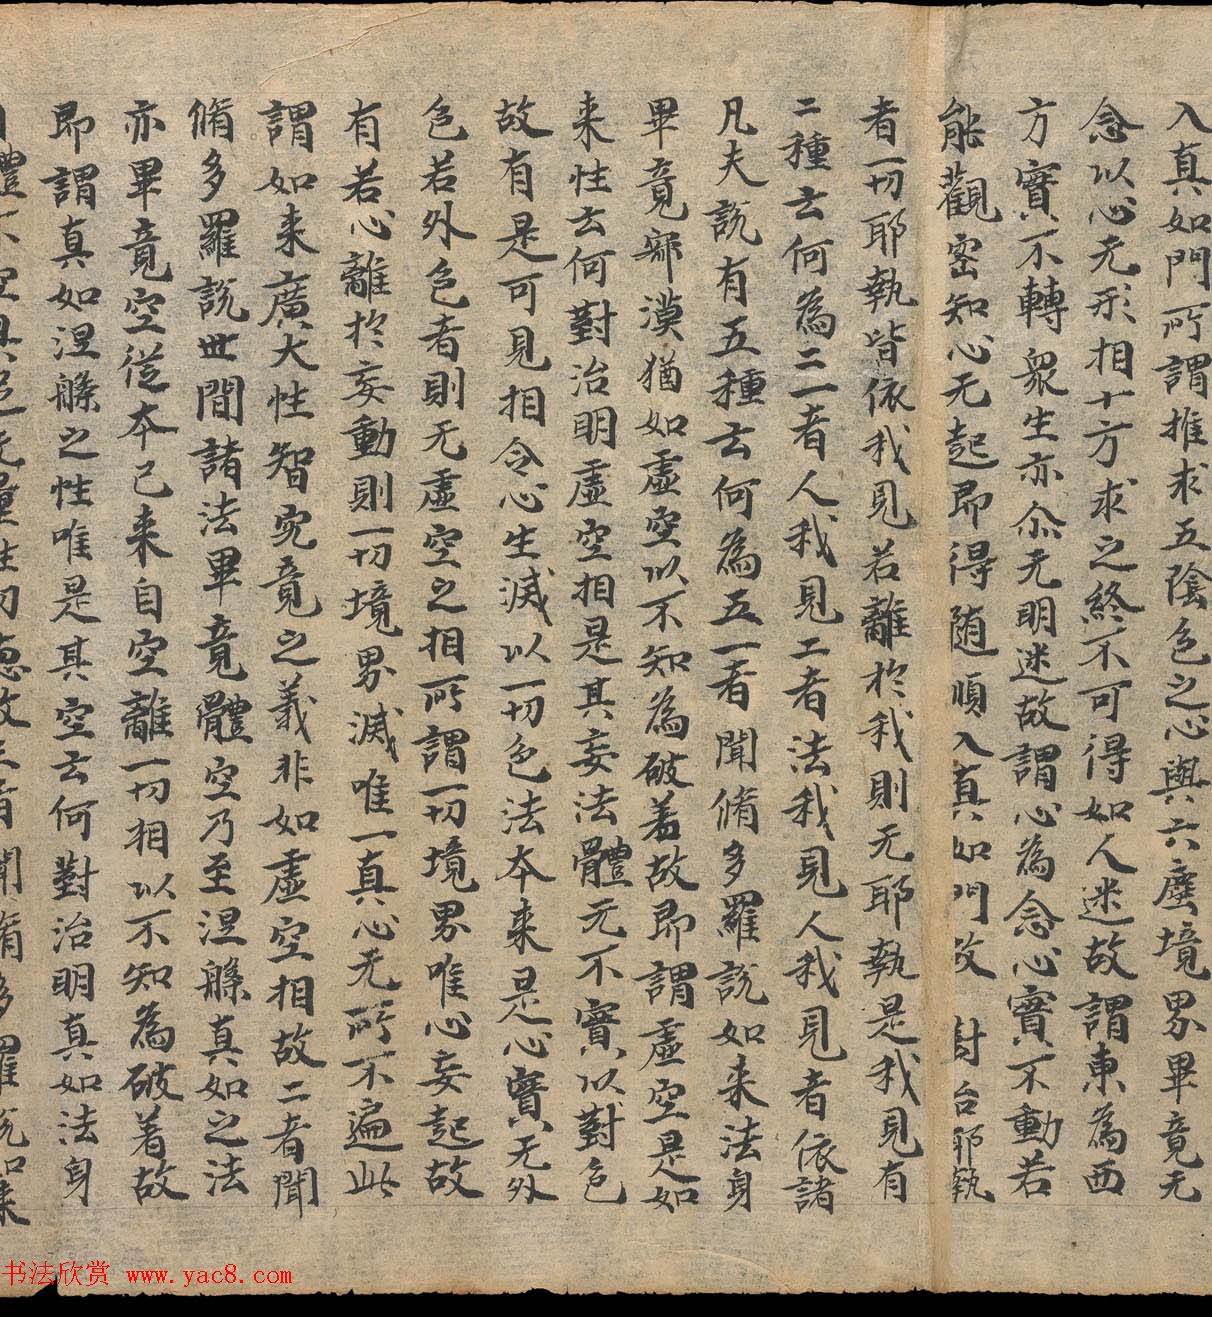 入真如門所謂推求五陰色之心與六塵境界畢竟无
念以心无形相十方求之終不可得如人迷故謂東為西
方實不轉衆生亦尒无明迷故謂心為念心實不動若
能觀察知心无起即得随順入真如門故 對治耶執
者一切耶執皆依我見若離於我則无耶執是我見有
二種云何為二一者人我見二者法我見人我見者依諸
凡夫說有五種云何為五一者聞脩多羅說如来法身
畢竟寂漠猶如虛空以不知為破著故即謂虛空是如
来性云何對治明虛空相是其妄法體无不實以對色
故有是可見相令心生滅以一切色法本来是心實无外
色若外色者則无虛空之相所謂一切境界唯心妄起故
有若心離於妄動則一切境界滅唯一真心无所不遍此
謂如来廣大性智究竟之義非如虛空相故二者聞
脩多羅說世間諸法畢竟體空乃至涅槃真如之法
亦畢竟空従本已来自空離一切相以不知為破着故
即謂真如涅槃之性唯是其空云何對治明真如法身
體不空具色无量性功德故三者聞脩多羅說如来
书法欣赏 www.yac8.com